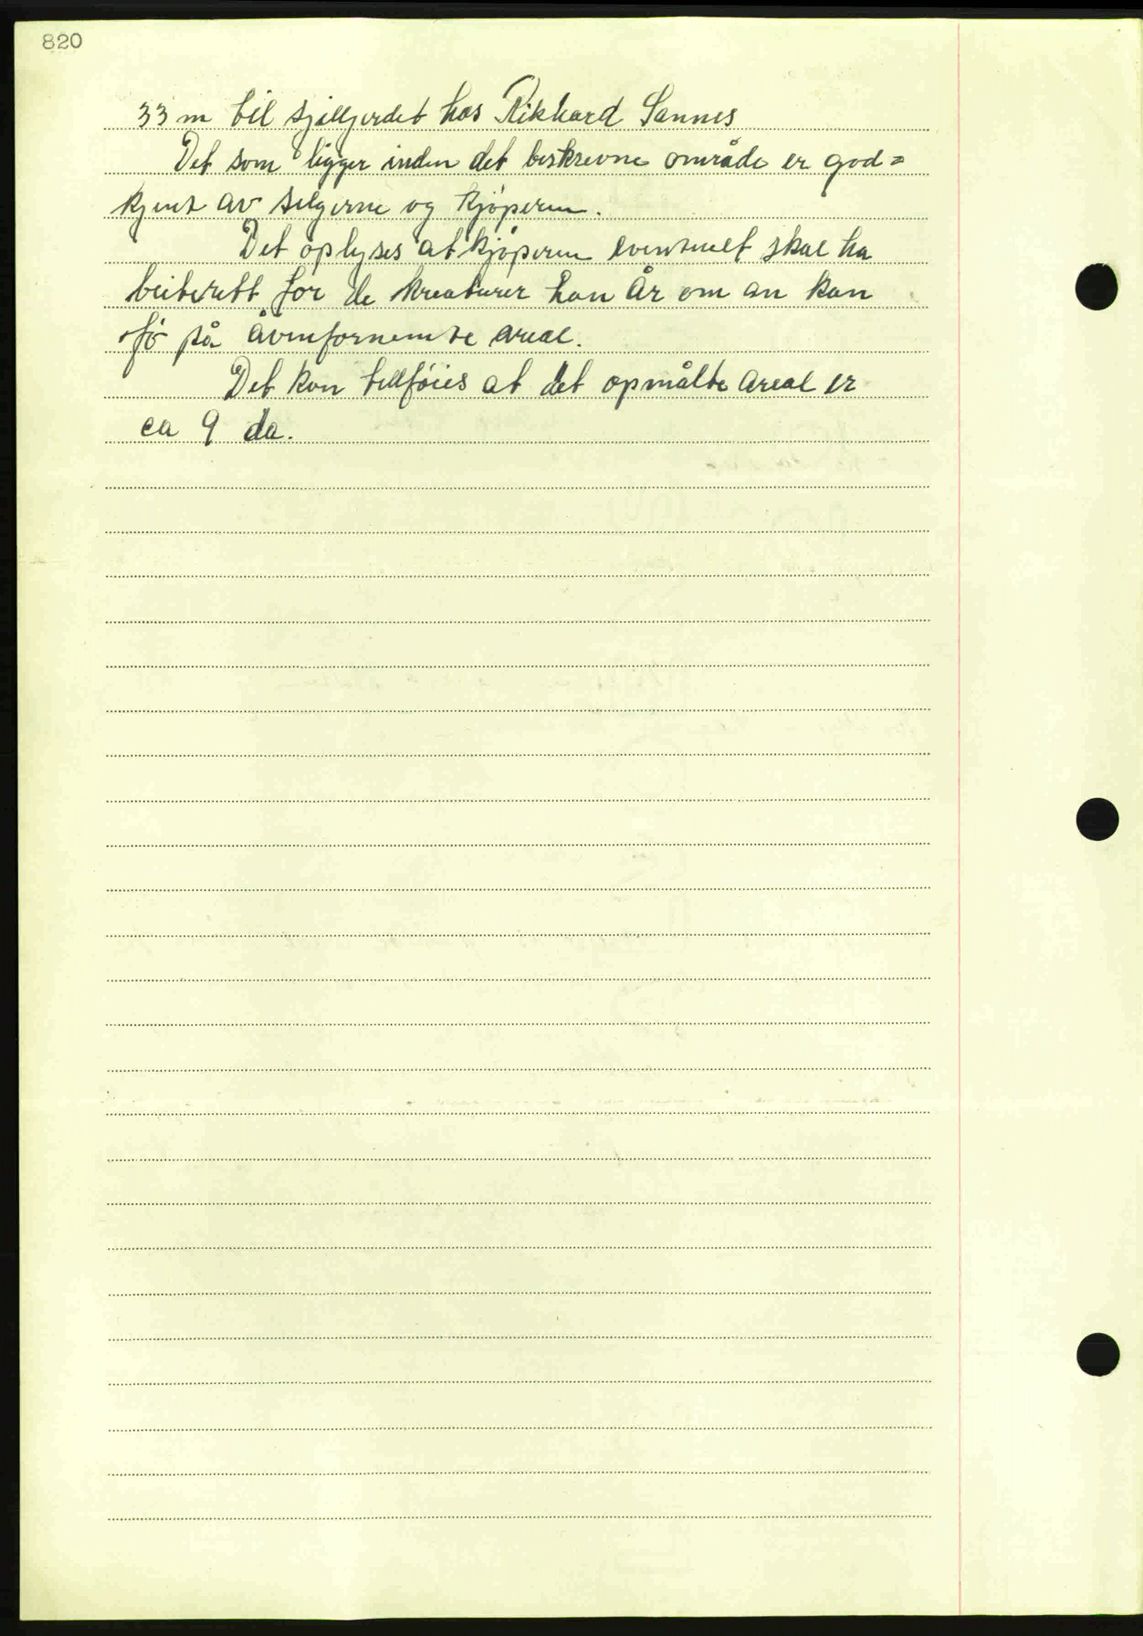 820
33 m til skjillgjerdet hos Rikhard Sannes
Det som ligger inden det beskrevne område er god=
kjent av selgerne og kjøperen.
Det oplyses at kjøperen eventuelt skal ha
beiterett for de kreaturer han År om an kan
fø på åvenfornemte areal.
Det kan tillføies at det opmålte areal er
ca 9 da.